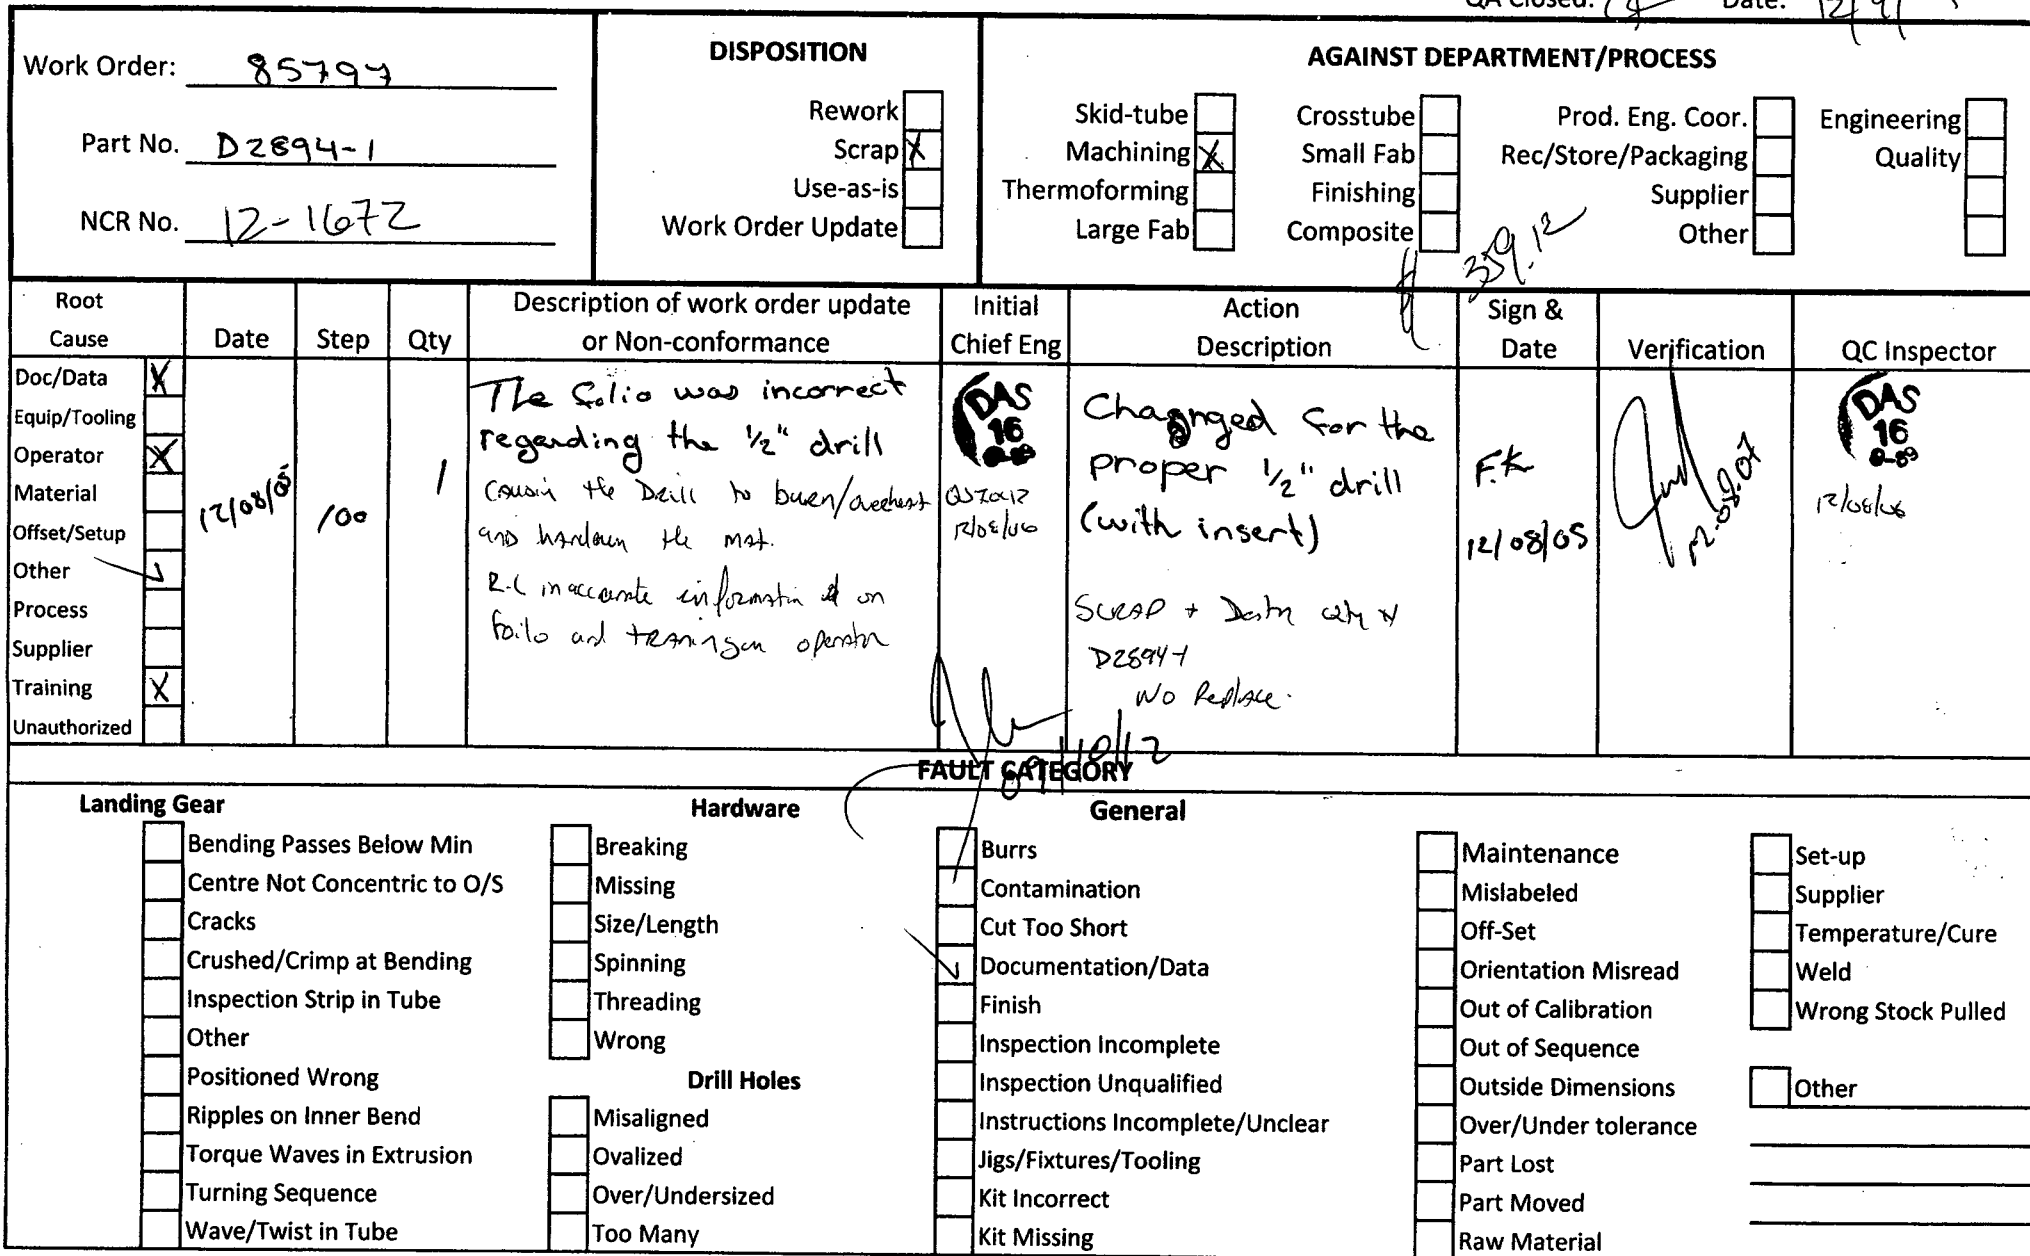 QA Closed: Date: 12/9/
DISPOSITION
AGAINST DEPARTMENT/PROCESS
Work Order: 85797
Part No. D2894-1
NCR No. 12-1672
Rework
Scrap X
Use-as-is
Work Order Update
Skid-tube
Machining X
Thermoforming
Large Fab
Crosstube
Small Fab
Finishing
Composite
Prod. Eng. Coor.
Rec/Store/Packaging
Supplier
Other
Engineering
Quality
$ 359.12
Root
Cause
Date
Step
Qty
Description of work order update
or Non-conformance
Initial
Chief Eng
Action
Description
Sign &
Date
Verification
QC Inspector
Doc/Data X
Equip/Tooling
Operator X
Material
Offset/Setup
Other
Process
Supplier
Training X
Unauthorized
12/08/05
100
1
The folio was incorrect
regarding the 1/2" drill
cousin the Drill to buen/overheat
and harden the mat.
R.C inaccurate information on
foilo and training on operator
DAS
16
12/08/06
09/10/12
Chagnged for the
proper 1/2" drill
(with insert)
SCRAP +
D2894-1
No Replace.
F.K
12/08/05
12.08.07
DAS
16
12/08/06
FAULT CATEGORY
Landing Gear
Bending Passes Below Min
Centre Not Concentric to O/S
Cracks
Crushed/Crimp at Bending
Inspection Strip in Tube
Other
Positioned Wrong
Ripples on Inner Bend
Torque Waves in Extrusion
Turning Sequence
Wave/Twist in Tube
Hardware
Breaking
Missing
Size/Length
Spinning
Threading
Wrong
Drill Holes
Misaligned
Ovalized
Over/Undersized
Too Many
General
Burrs
Contamination
Cut Too Short
Documentation/Data
Finish
Inspection Incomplete
Inspection Unqualified
Instructions Incomplete/Unclear
Jigs/Fixtures/Tooling
Kit Incorrect
Kit Missing
Maintenance
Mislabeled
Off-Set
Orientation Misread
Out of Calibration
Out of Sequence
Outside Dimensions
Over/Under tolerance
Part Lost
Part Moved
Raw Material
Set-up
Supplier
Temperature/Cure
Weld
Wrong Stock Pulled
Other